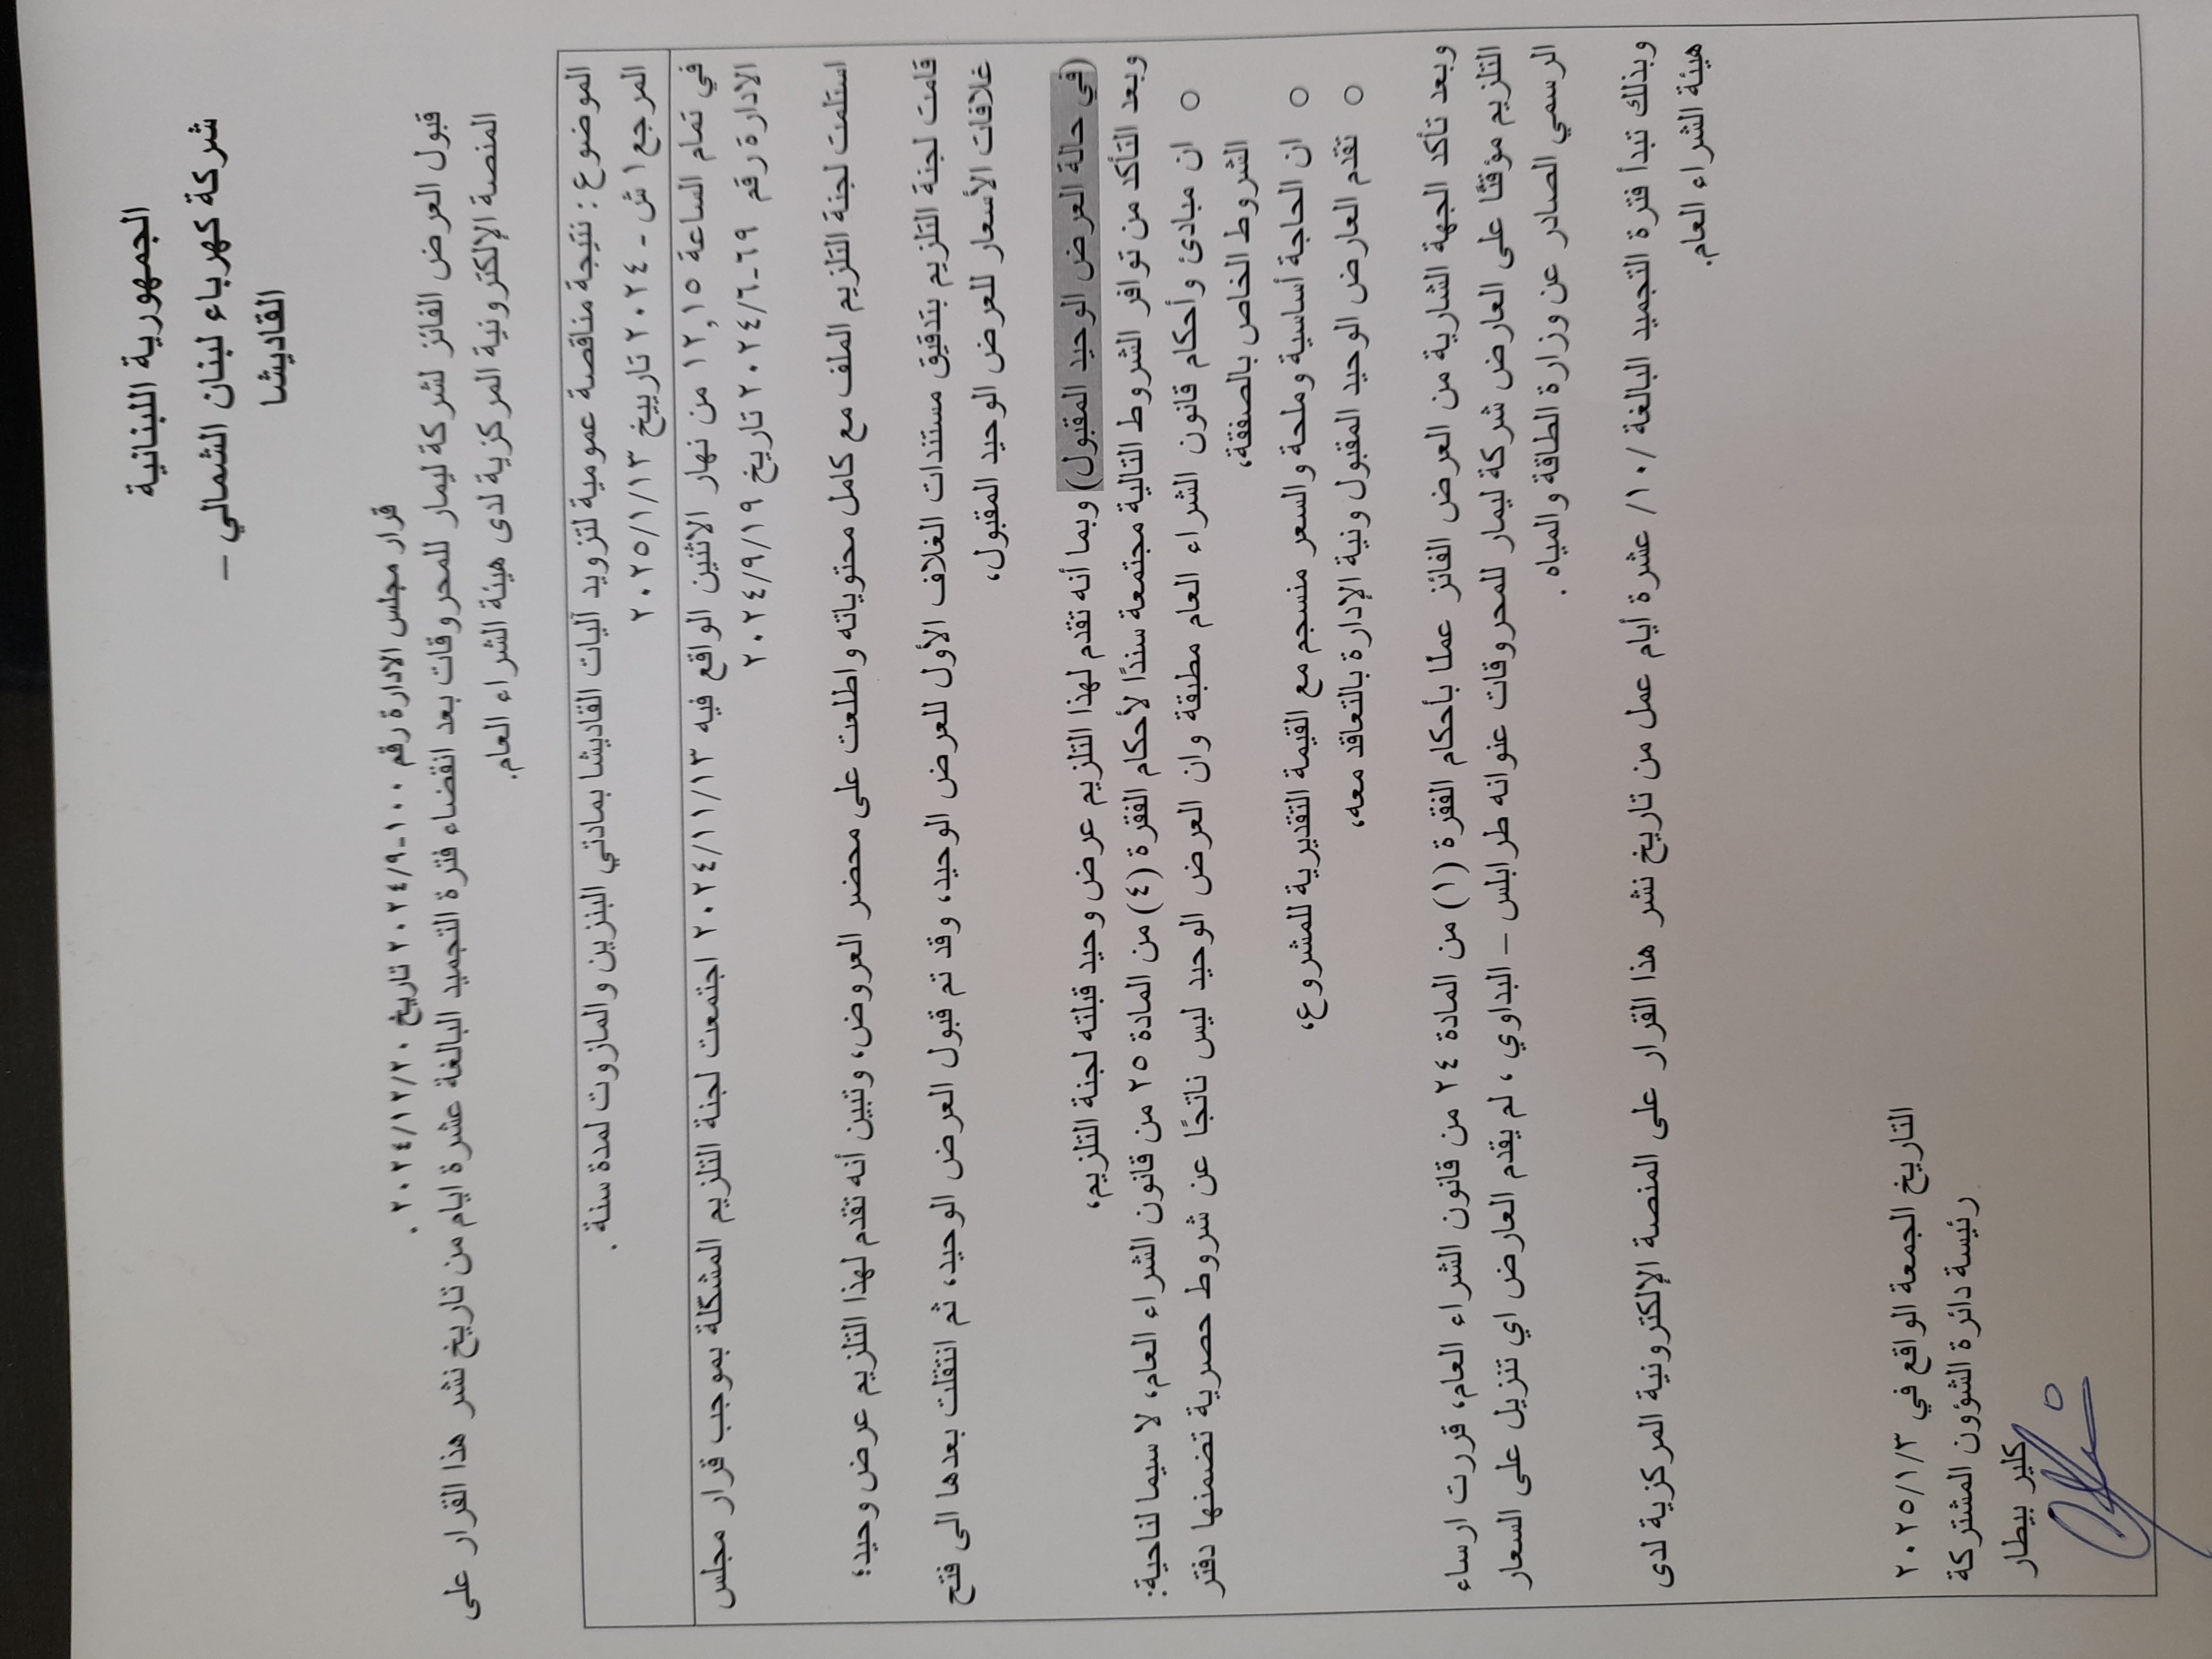 الجمهورية اللبنانية
شركة كهرباء لبنان الشمالي –
القاديشا
قرار مجلس الادارة رقم ١٠٠-٢٠٢٤/٩ تاريخ ٢٠٢٤/١٢/٢٠ .
قبول العرض الفائز لشركة ليمار للمحروقات بعد انقضاء فترة التجميد البالغة عشرة ايام من تاريخ نشر هذا القرار على
المنصة الإلكترونية المركزية لدى هيئة الشراء العام.
الموضوع : نتيجة مناقصة عمومية لتزويد آليات القاديشا بمادتي البنزين والمازوت لمدة سنة .
المرجع ١ش - ٢٠٢٤ تاريخ ٢٠٢٥/١/١٣
في تمام الساعة ١٢,١٥ من نهار الاثنين الواقع فيه ٢٠٢٤/١١/١٣ اجتمعت لجنة التلزيم المشكلة بموجب قرار مجلس
الادارة رقم ٦٩-٢٠٢٤/٦ تاريخ ٢٠٢٤/٩/١٩
استلمت لجنة التلزيم الملف مع كامل محتوياته واطلعت على محضر العروض، وتبين أنه تقدم لهذا التلزيم عرض وحيد؛
قامت لجنة التلزيم بتدقيق مستندات الغلاف الأول للعرض الوحيد، وقد تم قبول العرض الوحيد، ثم انتقلت بعدها الى فتح
غلافات الأسعار للعرض الوحيد المقبول،
(في حالة العرض الوحيد المقبول) وبما أنه تقدم لهذا التلزيم عرض وحيد قبلته لجنة التلزيم،
وبعد التأكد من توافر الشروط التالية مجتمعة سندًا لأحكام الفقرة (٤) من المادة ٢٥ من قانون الشراء العام، لا سيما لناحية:
○ ان مبادئ وأحكام قانون الشراء العام مطبقة وان العرض الوحيد ليس ناتجًا عن شروط حصرية تضمنها دفتر
الشروط الخاص بالصفقة،
○ ان الحاجة أساسية وملحة والسعر منسجم مع القيمة التقديرية للمشروع،
○ تقدم العارض الوحيد المقبول ونية الإدارة بالتعاقد معه،
وبعد تأكد الجهة الشارية من العرض الفائز عملًا بأحكام الفقرة (١) من المادة ٢٤ من قانون الشراء العام، قررت ارساء
التلزيم مؤقتًا على العارض شركة ليمار للمحروقات عنوانه طرابلس – البداوي ، لم يقدم العارض اي تنزيل على السعار
الرسمي الصادر عن وزارة الطاقة والمياه .
وبذلك تبدأ فترة التجميد البالغة /١٠/ عشرة أيام عمل من تاريخ نشر هذا القرار على المنصة الإلكترونية المركزية لدى
هيئة الشراء العام.
التاريخ الجمعة الواقع في ٢٠٢٥/١/٣
رئيسة دائرة الشؤون المشتركة
كلير بيطار